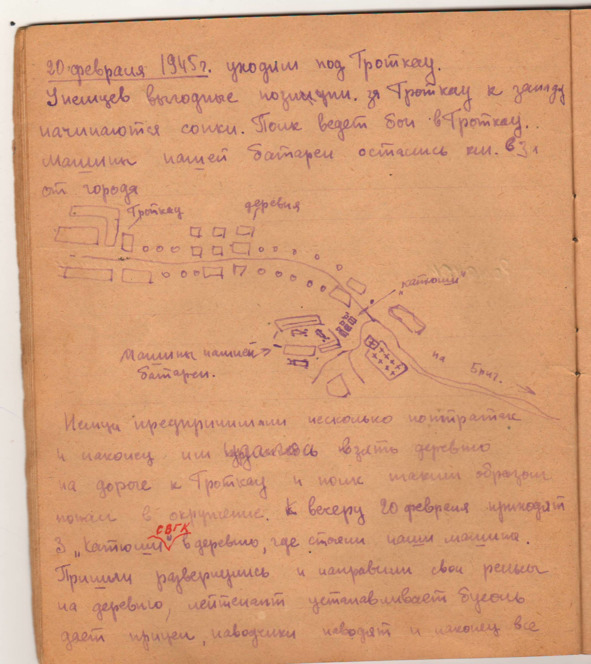 20 февраля 1945г. уходим под Гроткау.
У немцев выгодные позиции. за Гроткау к западу
начинаются сопки. Полк ведет бои в Гроткау.
Машины нашей батареи остались км. в 3х
от города
Гроткау
деревня
"катюши"
Машины нашей
батареи.
на
Бриг.
Немцы предпринимали несколько контратак
и наконец им удалось взять деревню
на дороге к Гроткау и полк таким образом
попал в окружение. К вечеру 20 февраля приходят
СВГК
3 "Катюши" в деревню, где стояли наши машины.
Пришли развернулись и направили свои рельсы
на деревню, лейтенант устанавливает буссоль
дает прицел, наводчики наводят и наконец всё